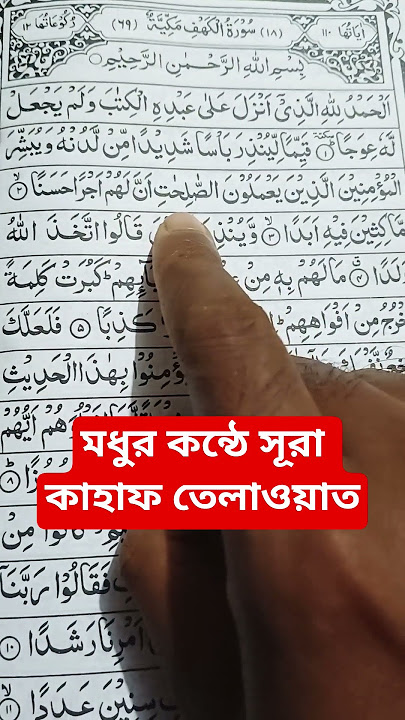 اٰيَاتُهَا ١١٠ (١٨) سُوْرَةُ الْكَهْفِ مَكِّيَّةٌ (٦٩) رُكُوْعَاتُهَا ١٢
بِسْمِ اللّٰهِ الرَّحْمٰنِ الرَّحِيْمِ
اَلْحَمْدُ لِلّٰهِ الَّذِيْٓ اَنْزَلَ عَلٰى عَبْدِهِ الْكِتٰبَ وَلَمْ يَجْعَلْ
لَّهٗ عِوَجًا ١ قَيِّمًا لِّيُنْذِرَ بَاْسًا شَدِيْدًا مِّنْ لَّدُنْهُ وَيُبَشِّرَ
الْمُؤْمِنِيْنَ الَّذِيْنَ يَعْمَلُوْنَ الصّٰلِحٰتِ اَنَّ لَهُمْ اَجْرًا حَسَنًا ٢
مَّاكِثِيْنَ فِيْهِ اَبَدًا ٣ قَالُوا اتَّخَذَ اللّٰهُ
وَلَدًا ٤ مَا لَهُمْ بِهٖ مِنْ كَبُرَتْ كَلِمَةً
تَخْرُجُ مِنْ اَفْوَاهِهِمْ كَذِبًا ٥ فَلَعَلَّكَ
بِهٰذَا الْحَدِيْثِ
اَيُّهُمْ
মধুর কন্ঠে সূরা
কাহাফ তেলাওয়াত
مِنْ
فَقَالُوْا رَبَّنَآ
اَمْرِنَا رَشَدًا ١٠
سِنِيْنَ عَدَدًا ١١